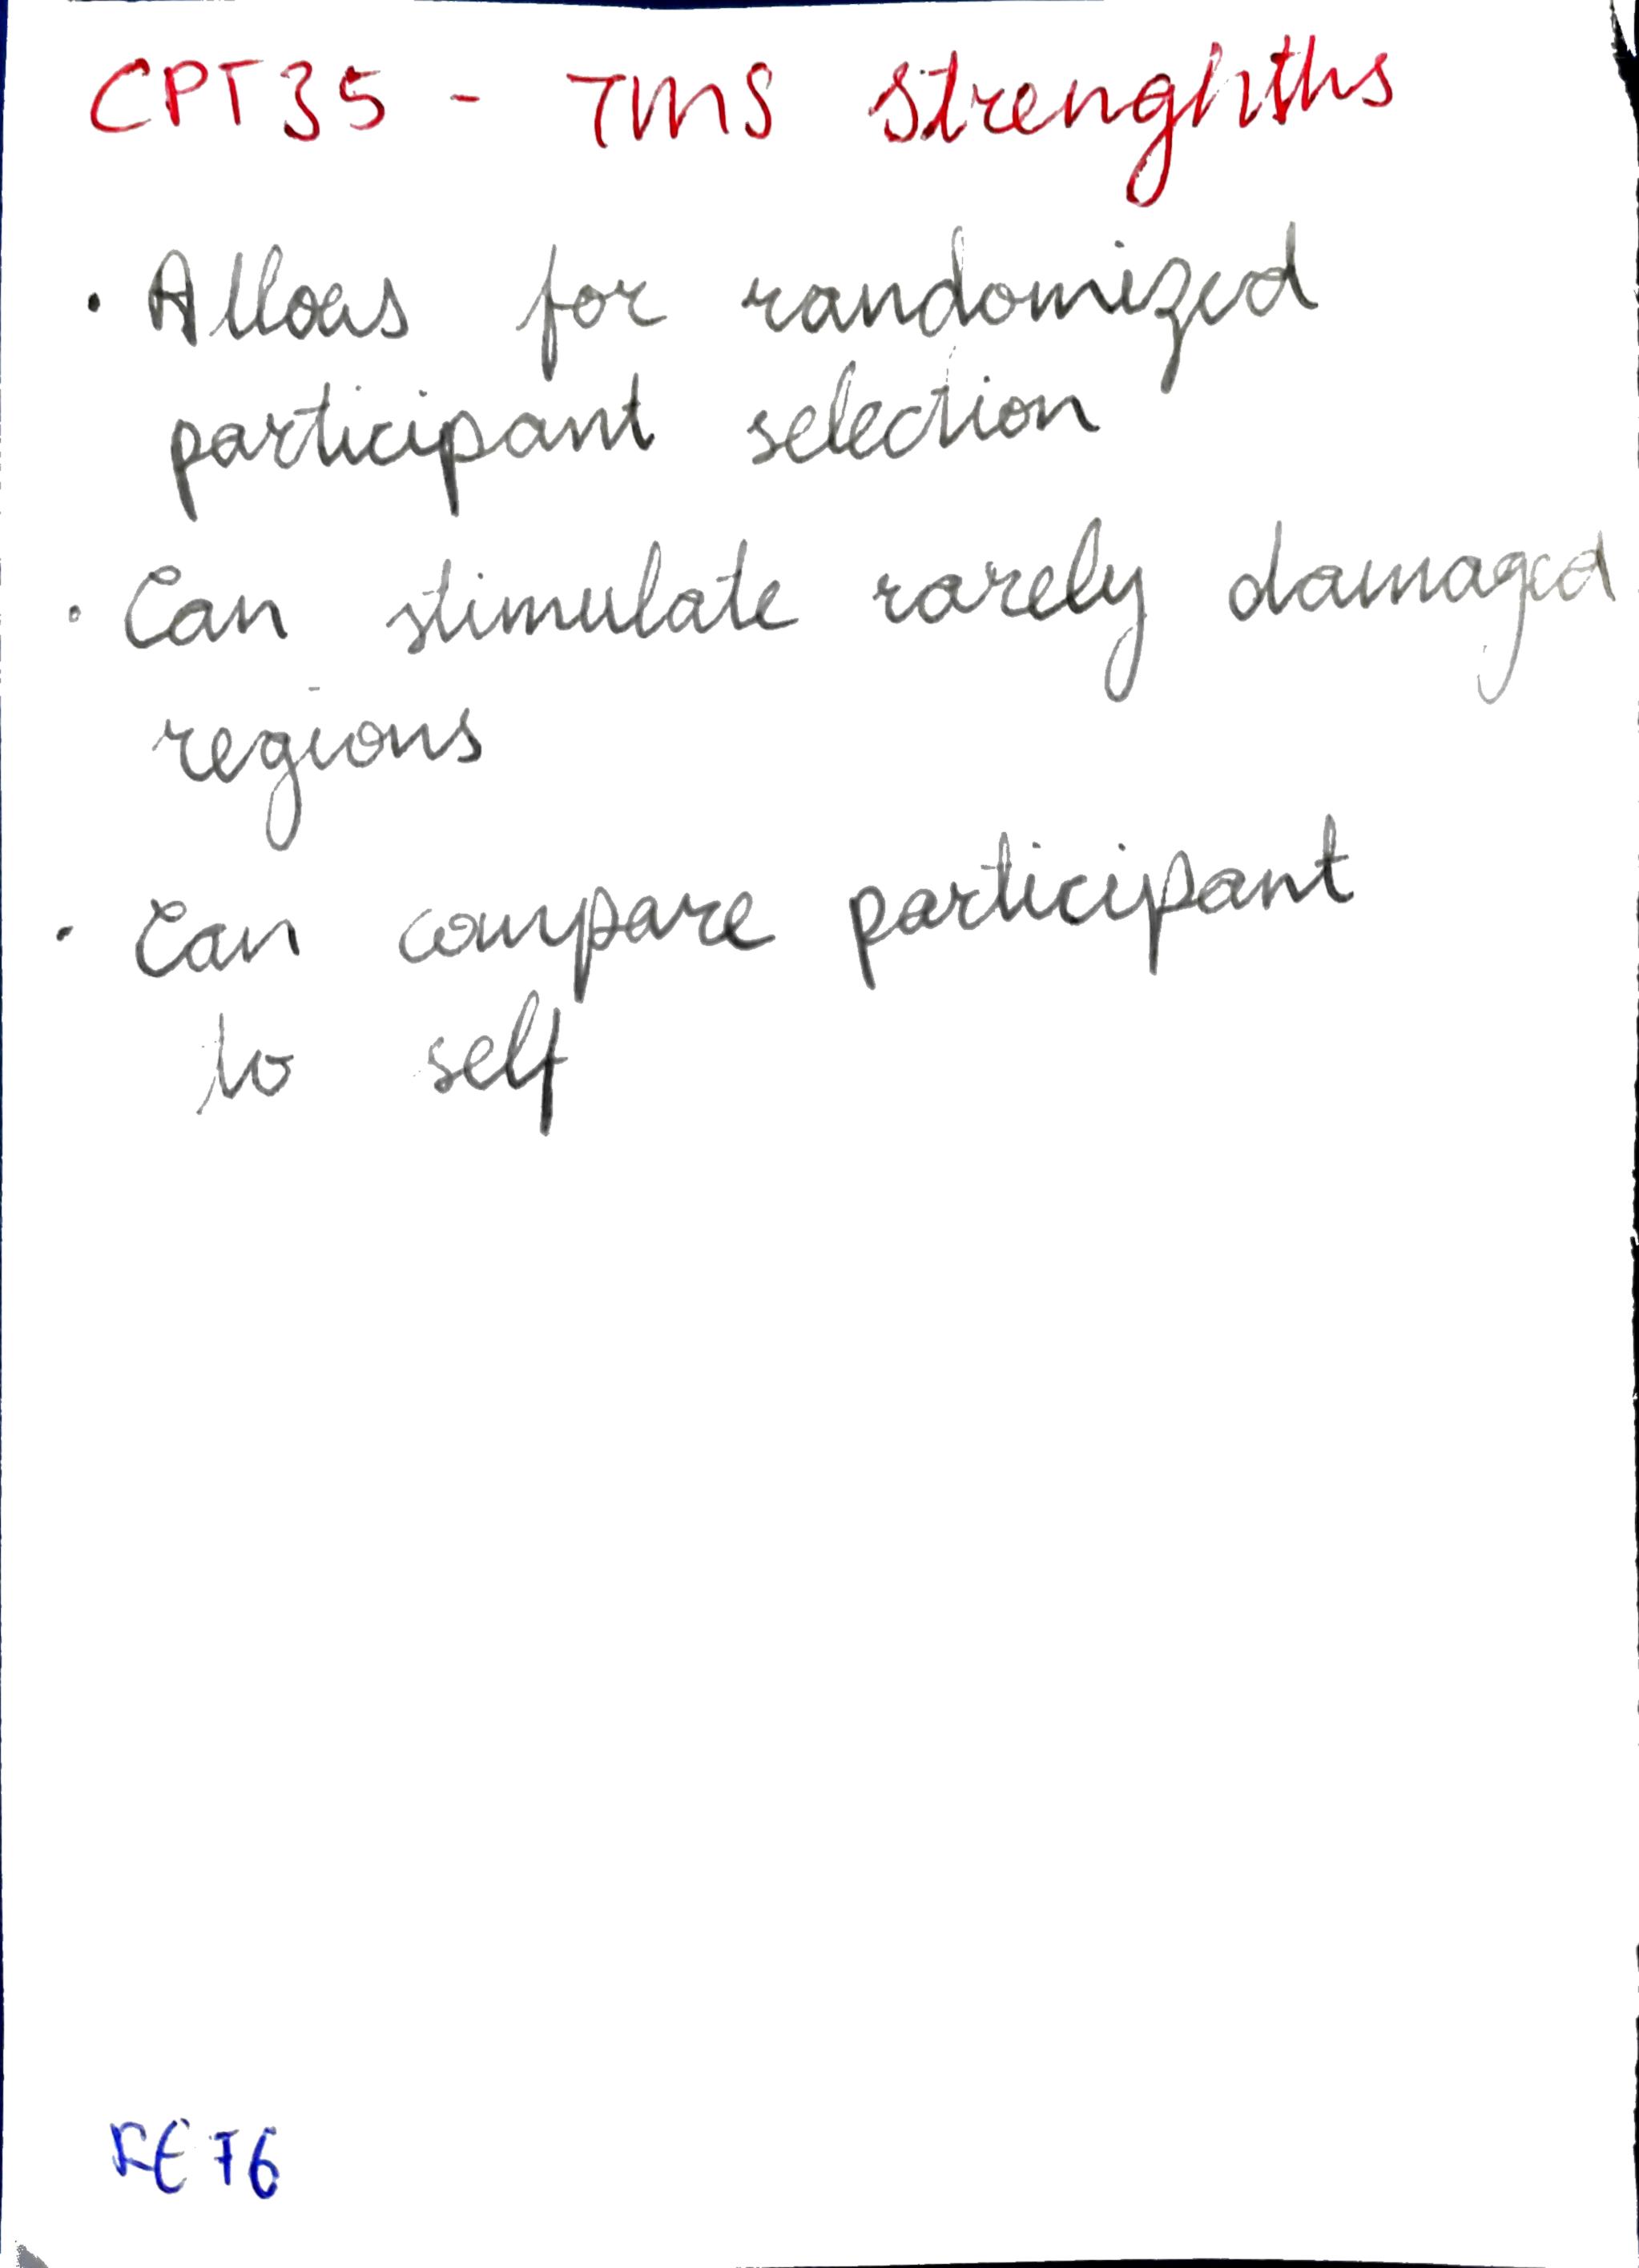 CPT35 - TMS strenghths
· Allows for randomized
participant selection
· Can stimulate rarely damaged
regions
· Can compare participant
to self
RE76